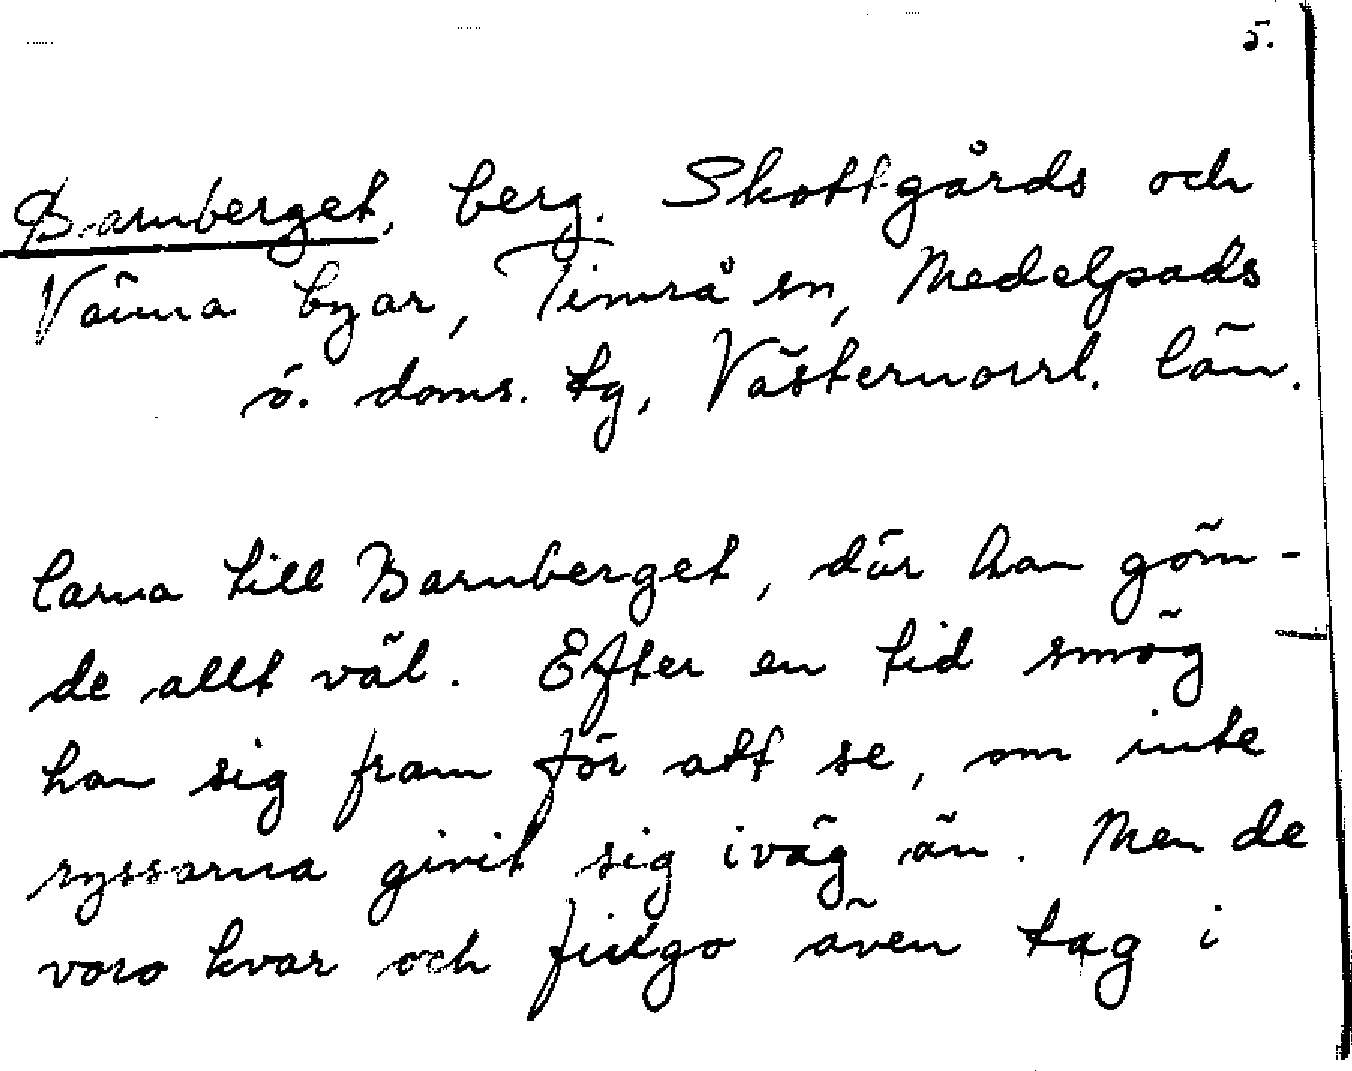 5.
Barnberget, berg. Skottgårds och
Vänna byar, Timrå sn, Medelpads
ö. doms. tg, Västernorrl. län.
larna till Barnberget, där han göm-
de allt väl. Efter en tid smög
han sig fram för att se, om inte
ryssarna givit sig iväg än. Men de
voro kvar och fingo även tag i